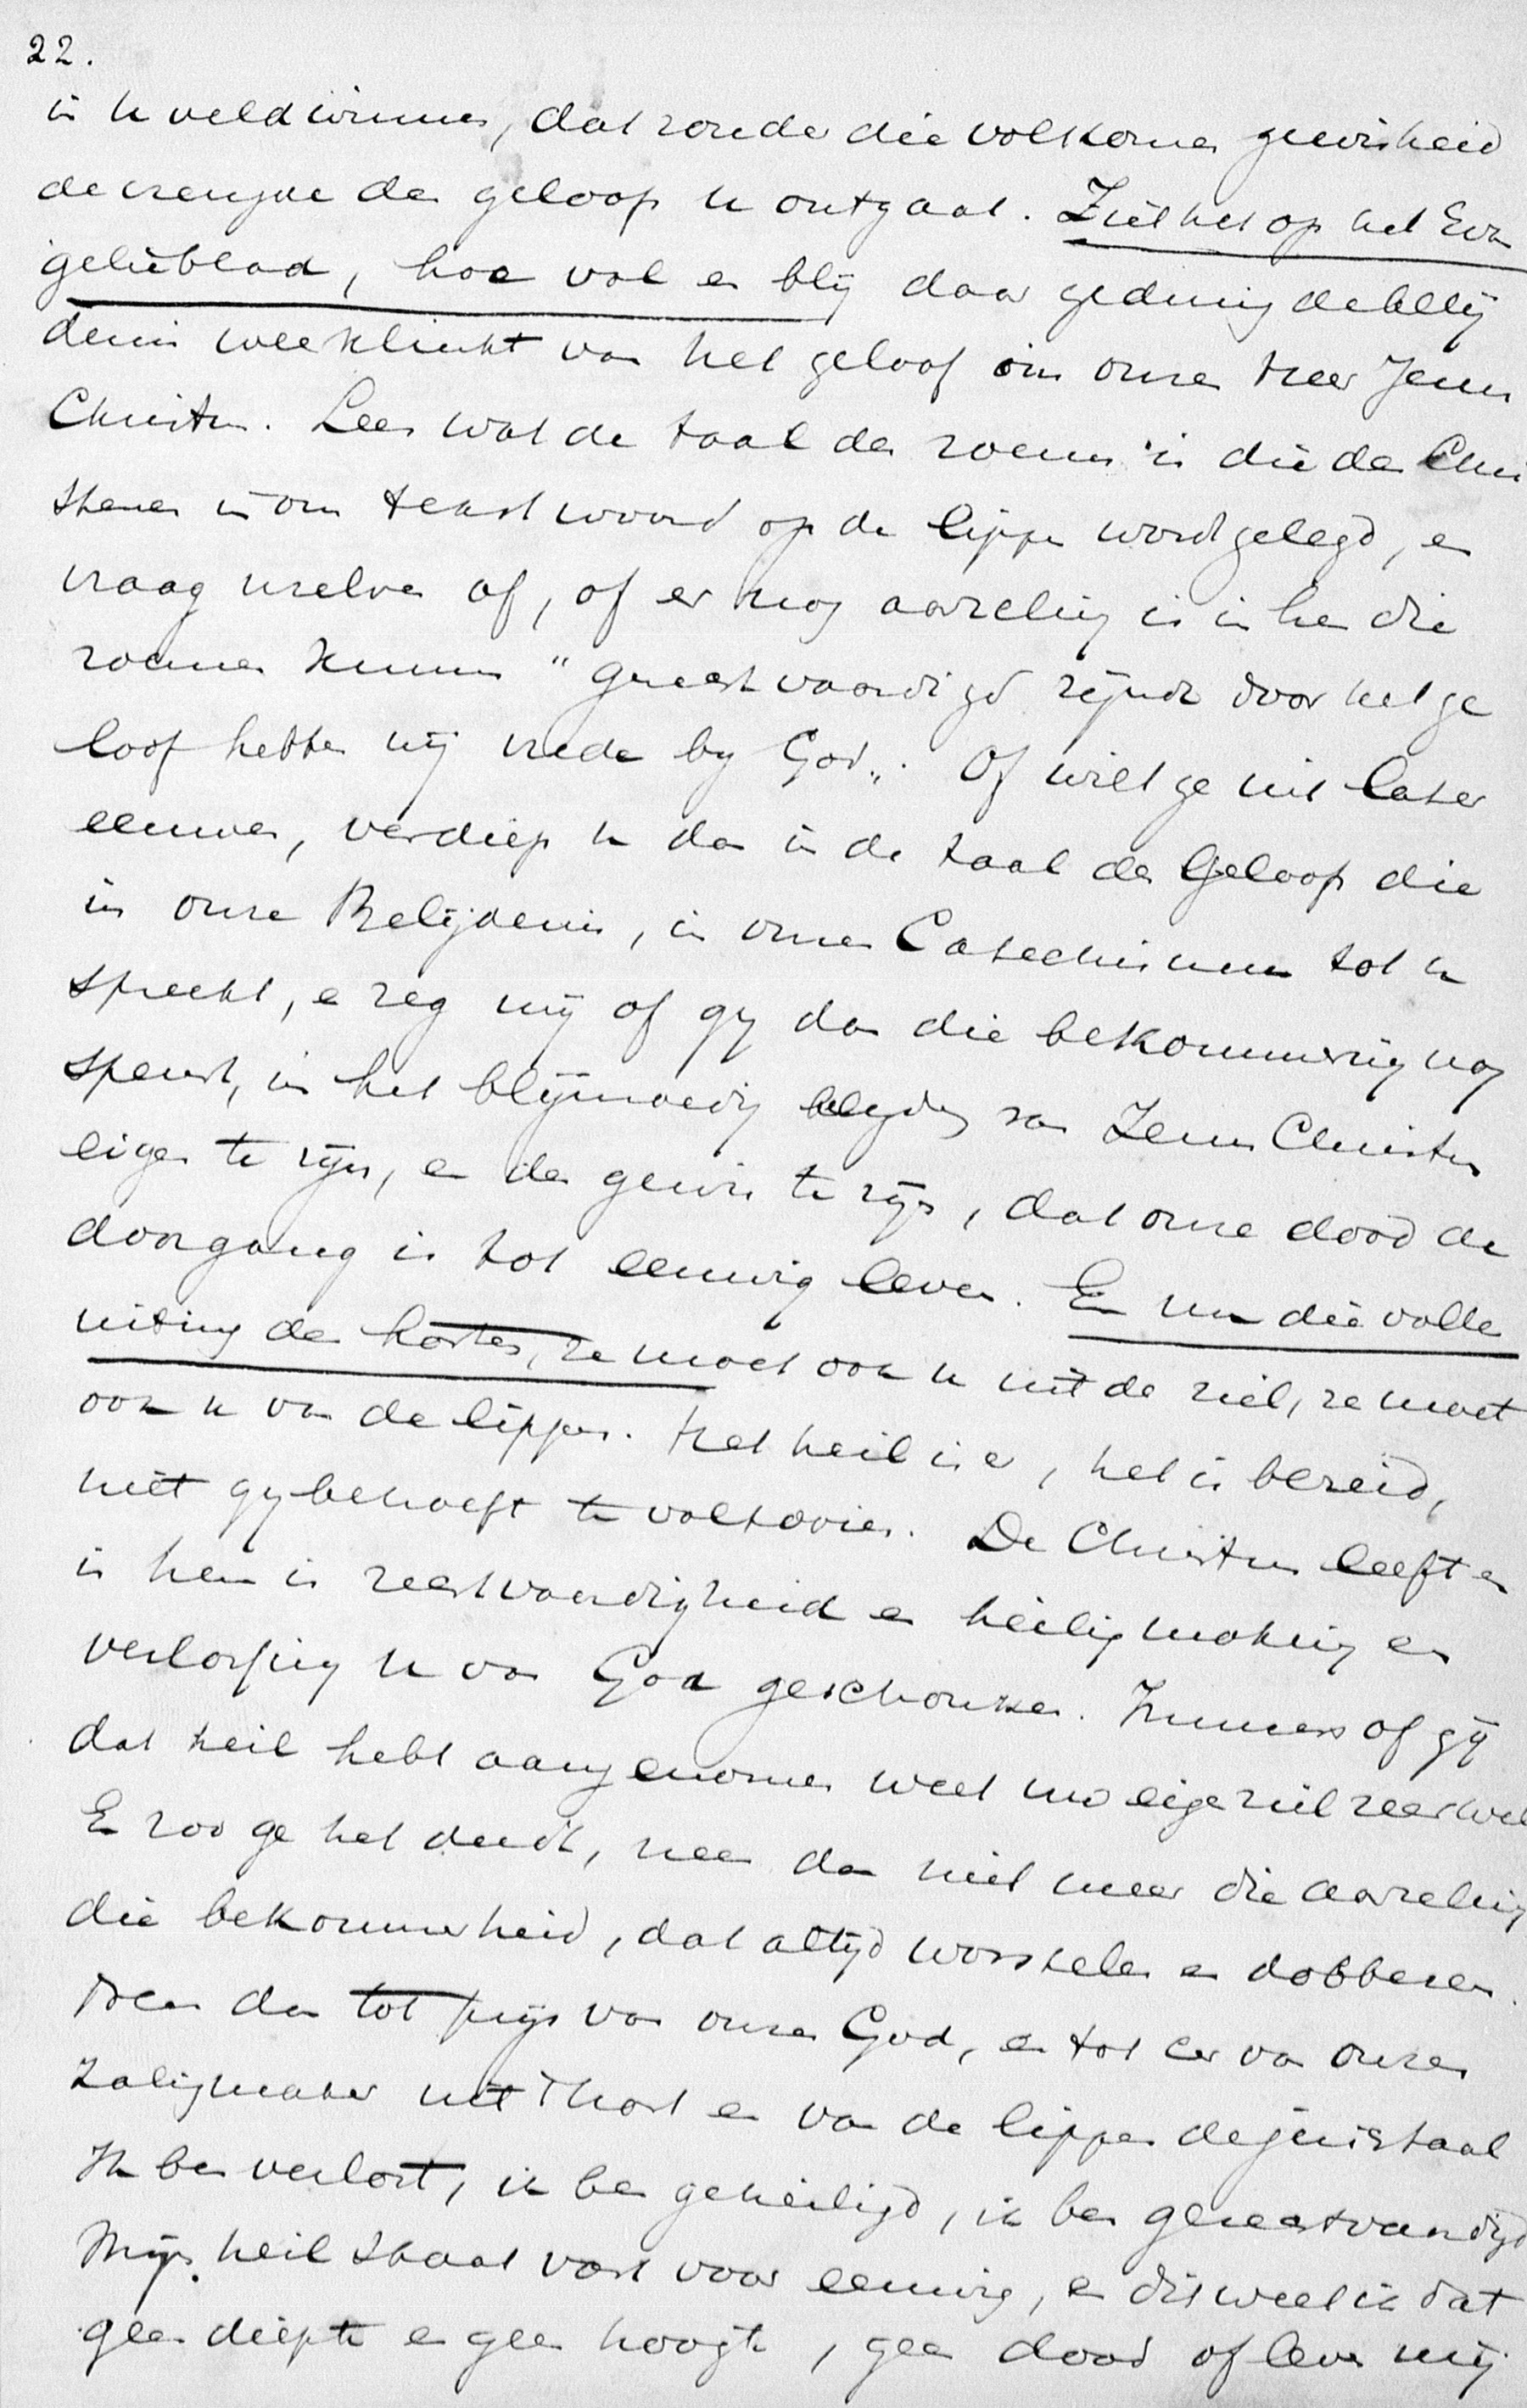 22.
in u veld winnen, dat zonder die volkomen gewisheid
de vreugde des geloofs u ontgaat. Ziet het op het Evan
gelieblad, hoe vol en blij daar gedurig de belij
denis weerklinkt van het geloof in onzen Heer Jezus
Christus. Lees wat de taal des roems is die den Chri
stenen in ons tekstwoord op de lippen wordt gelegd, en
vraag uzelven af, of er nog aarzeling is in hen die
roemen kunnen "gerechtvaardigd zijnde door het ge
loof hebben wij vrede by God". Of wilt ge uit later
eeuwen, verdiep u dan in de taal des Geloofs die
in onze Belijdenis, in onzen Catechismus tot u
spreekt, en zeg mij of gy dan die bekommering nog
speurt, in het blijmoedig belyden van Jezus Christus
eigen te zijn, en des gewis te zijn, dat onze dood de
doorgang is tot eeuwig leven. En nu die volle
uiting des harten, ze moet ook u uit de ziel, ze moet
ook u van de lippen. Het heil is er, het is bereid,
niet gy behoeft te voltooien. De Christus leeft en
in hem is rechtvaardigheid en heiligmaking en
verlossing u van God geschonken. Immers of gij
dat heil hebt aangenomen weet uw eigen ziel zeer wel
En zoo ge het deedt, neen dan niet meer die aarzeling
die bekommerheid, dat altijd worstelen en dobberen.
Neen dan tot prijs van onzen God, en tot eer van onzen
Zaligmaker uit 't hart en van de lippen de juichtaal
Ik ben verlost, ik ben geheiligd, ik ben gerechtvaardigd
Mijn heil staat vast voor eeuwig, en dit weet ik dat
geen diepte en geen hoogte, geen dood of leven mij